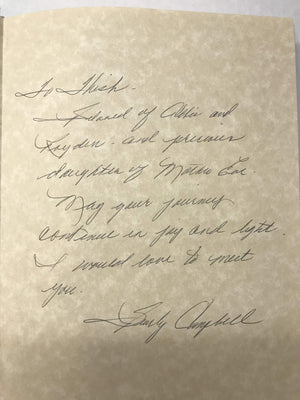 To Trish.
Friend of Abbie and
Kayden. and precious
daughter of Mother Eve.
May your journey
continue in joy and light.
I would love to meet
you.
Campbell